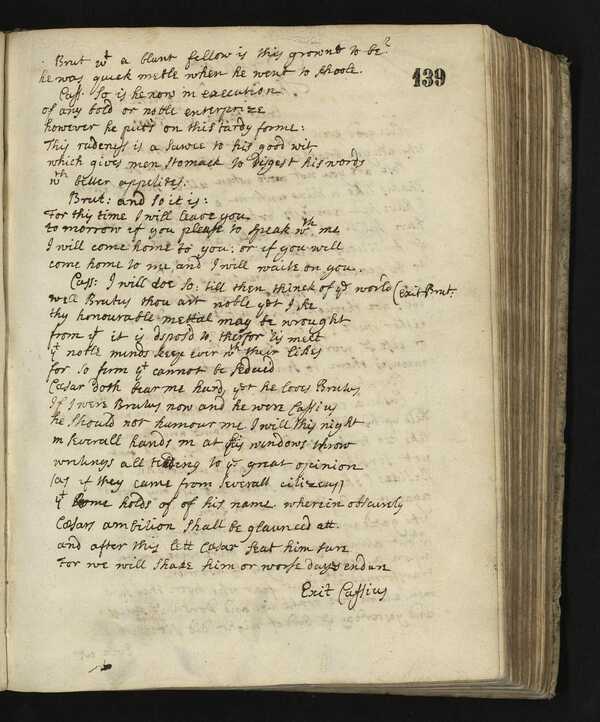 Brut wt a blunt fellow is this grownd to be?
139
he was quick metle when he went to shoole.
Cass: So is he now in execution
of any bold or noble enterprize
however he putts on this tardy forme:
This rudeness is a sawce to his good wit
which gives men stomack to disgest his words
wth better appetites:
Brut: and so it is:
For thy time I will leave you
to morrow if you please to speak wth me
I will come home to you: or if you will
come home to me and I will waite on you.
Cass: I will doe so: till then thinck of ye world (Exit Brut:
well Brutus thou art noble yet I se
thy honourable mettal may be wrought
from yt it is disposd to, therfor tis meet
yt noble minds keep ever wth their likes
for so firm yt cannot be seduced
Cæsar doth bear me hard, yet he loves Brutus
If I were Brutus now and he were Cassius
he should not humour me I will this night
in severall hands in at his windows throw
writings all tending to ye great opinion
(as if they came from severall citizens)
yt Rome holds of of his name wherein obscurely
Cæsars ambition shall be glaunced att.
and after this lett Cæsar seat him sure
For we will shake him or worse dayes endure
Exit Cassius